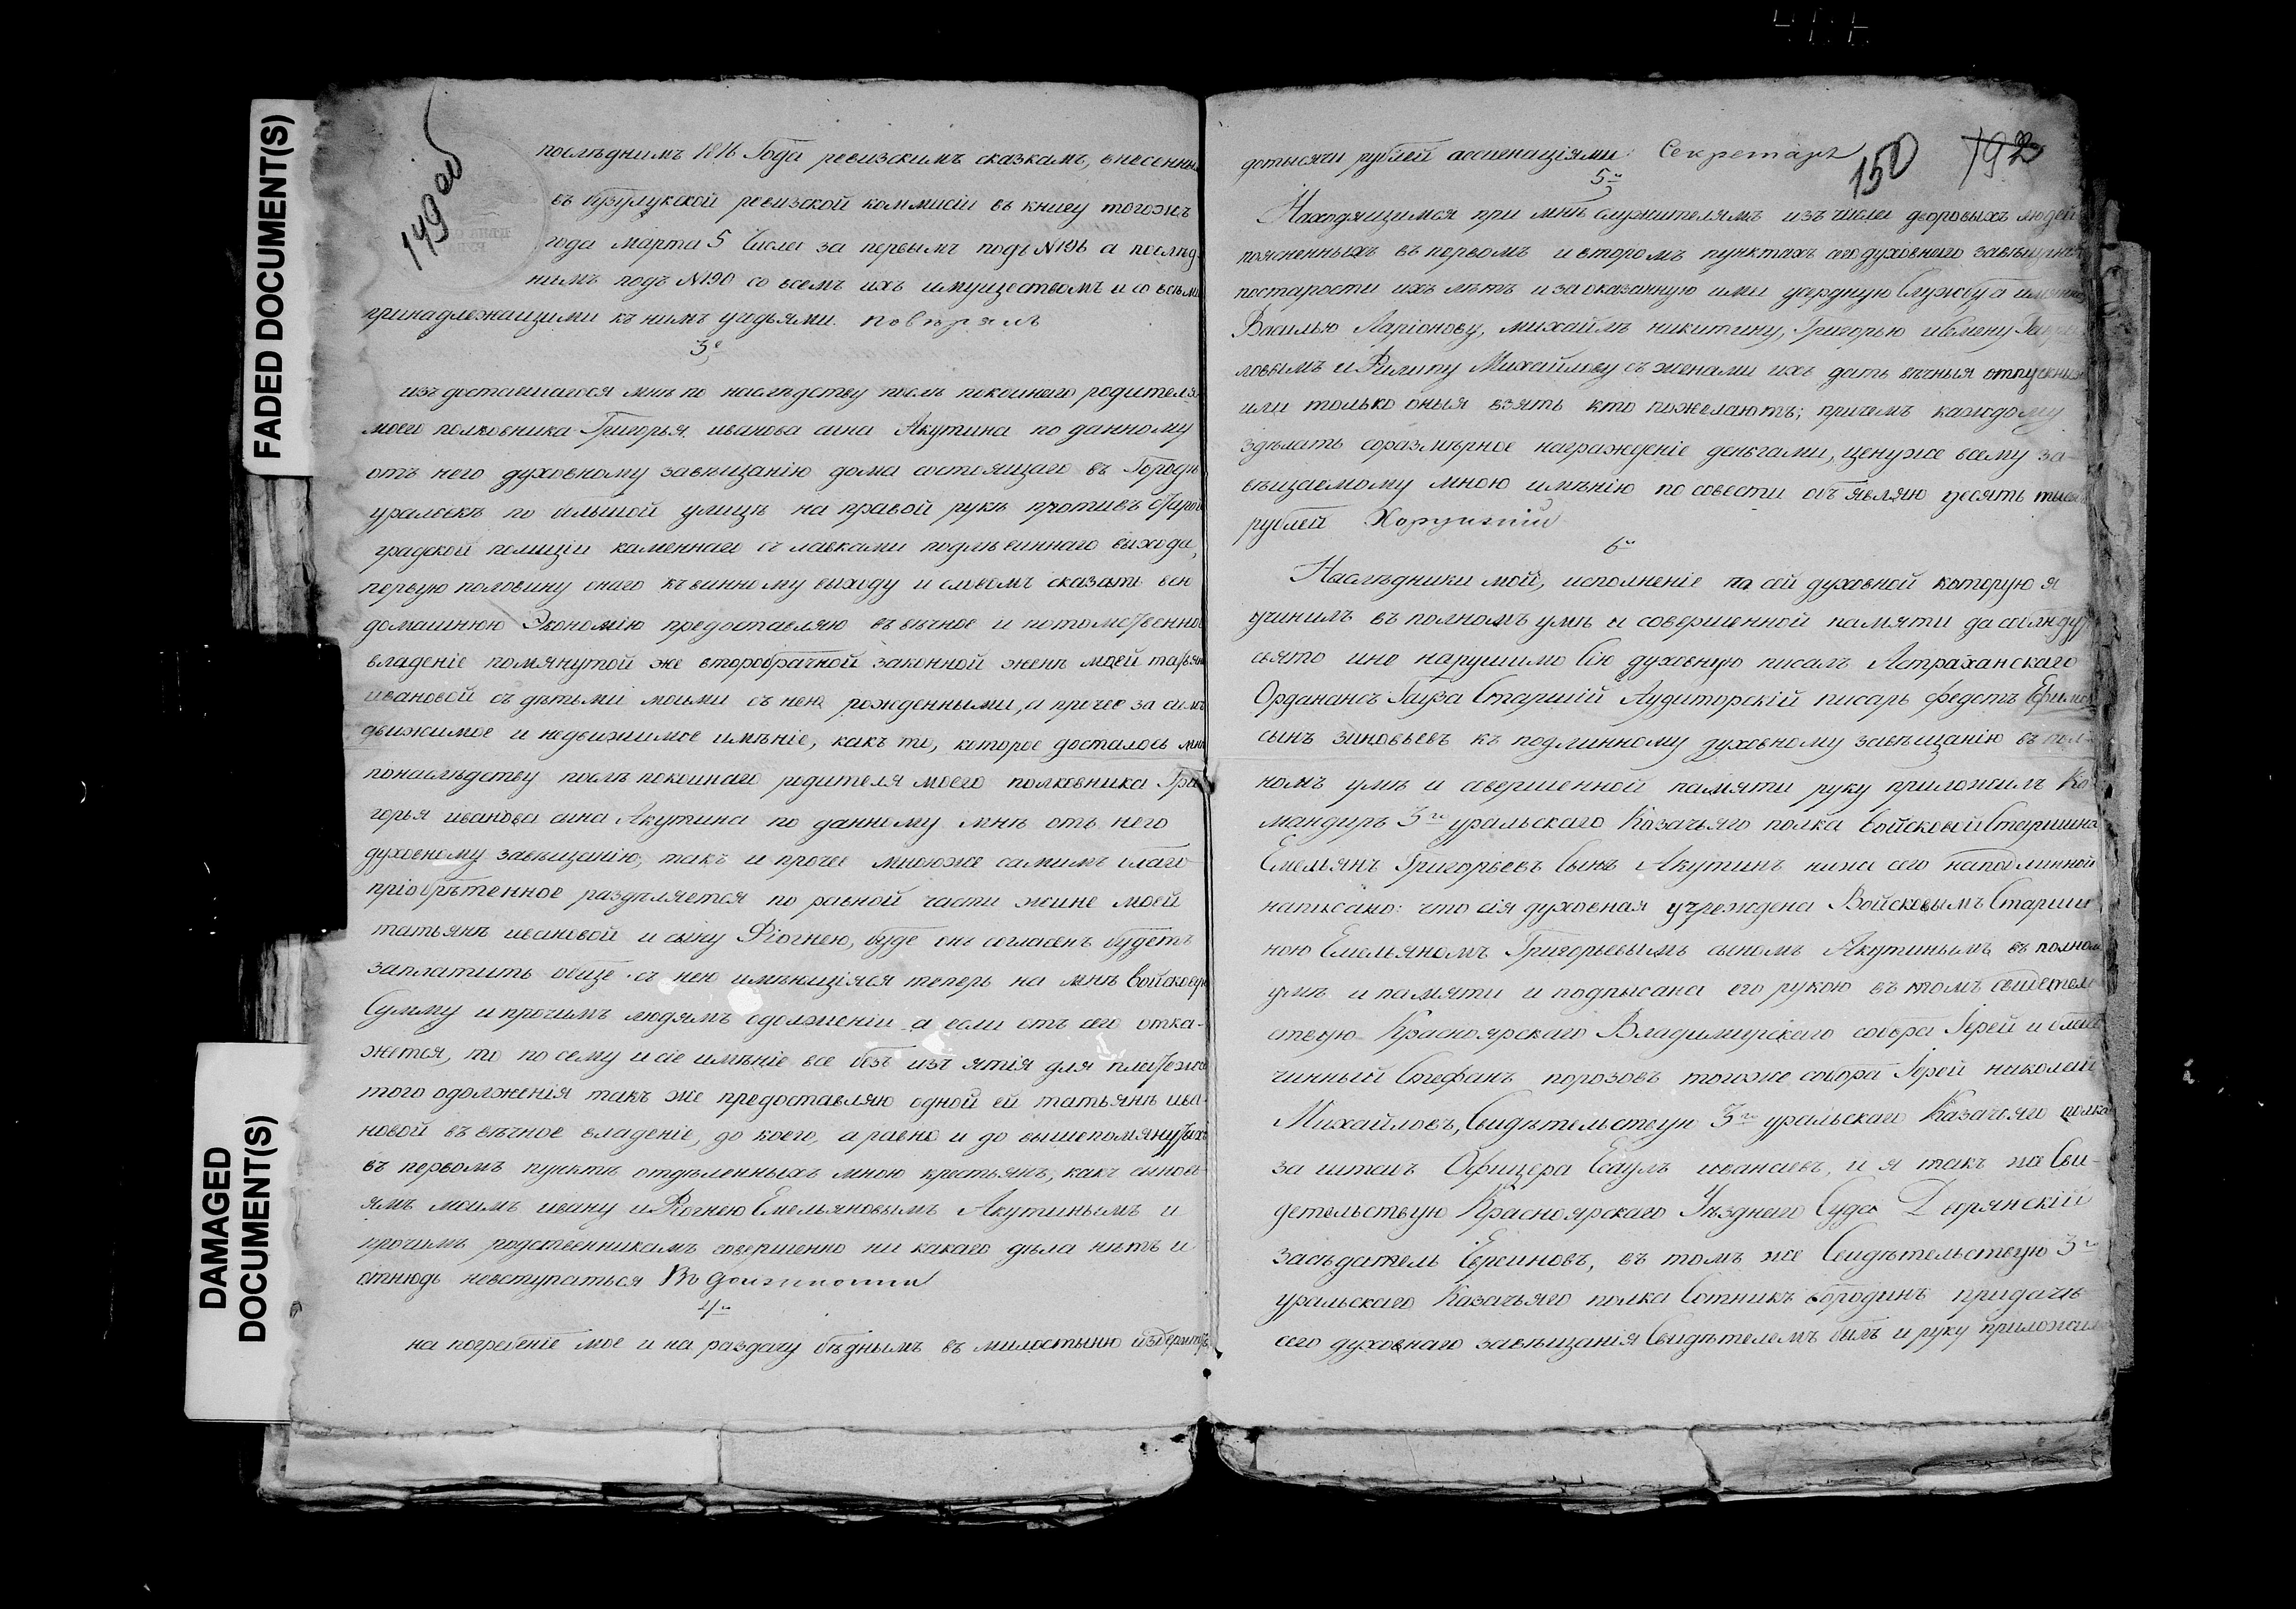 FADED DOCUMENT(S)
DAMAGED DOCUMENT(S)
149 об
послѣднимъ 1816 Года ревизскимъ сказкамъ, внесенны
въ бузулукской ревизской коммисіи въ книгу тогожъ
года марта 5 Числа за первымъ подъ №196 а послѣд
нимъ подъ №190 со всемъ ихъ имуществомъ и со всѣми
принадлежащими къ нимъ угодьями. повѣрялъ
3е
изъ доставшагося мнѣ по наслѣдству послѣ покоинаго родителя
моего полковника Григорья иванова сина Акутина по данному
отъ него духовному завѣщанію дома состоящаго въ Городѣ
уральскѣ по большой улицѣ на правой рукѣ противъ
градской полиціи каменнаго съ лавками подлѣ виннаго выхода,
первую половину онаго къ винному выходу и словомъ сказать всю
домашнюю Экономію предоставляю въ вѣчное и потомственно
владеніе помянутой же второбрачной законной женѣ моей татьян
ивановой съ дѣтьми моими съ нею рожденными, а прочее за симъ
движимое и недвижимое имѣніе, какъ то, которое досталось мнѣ
понаслѣдству послѣ покоинаго родителя моего полковника Гри
горья иванова сина Акутина по данному мнѣ отъ него
духовному завѣщанію, такъ и прочее мноюже самимъ благо
пріобрѣтенное раздѣляется по равной части жине моей
татьянѣ ивановой и сыну Фіогнею, буде онъ согласенъ будетъ
заплатить обще съ нею имѣющіяся теперь на мнѣ войскову
Сумму и прочимъ людямъ одолженіи а если отъ сего отка-
жется, то по сему и сіе имѣніе все безъ изъятія для платежа
того одолженія такъ же предоставляю одной ей татьянѣ ива-
новой въ вѣчное владеніе, до коего, а равно и до вышепомянутых
въ первомъ пунктѣ отдѣленныхъ мною крестьянъ, какъ сыновь
ямъ моимъ ивану и Фіогнею Емельяновымъ Акутинымъ и
прочимъ родственникамъ совершенно ни какаго дѣла нѣтъ и
отнюдь невступаться Въ должности
4е
на погребеніе мое и на раздачу бѣднымъ въ милостыню издержать
150 192
дотысячи рублей ассигнаціями: Секретарь
5е
Находящимся при мнѣ служителямъ изъ числа дворовыхъ людей
поясненныхъ въ первомъ и второмъ пунктахъ сего духовнаго завѣщания
постарости ихъ лѣтъ и за оказанную ими усердную Службу а имянно
Василью Ларіонову, михайлѣ никитину, Григорью и семену Гаври
ловымъ и Филипу Михайлову съ женами ихъ дать вѣчныя отпускныя
или только оныя взять кто пожелаютъ; причемъ каждому
здѣлать соразмѣрное награжденіе деньгами, цену же всему за-
вѣщаемому мною имѣнію по совести объявляю десять тысяч
рублей Хорунжій
6е
Наслѣдники мои, исполненіе по сей духовной которую я
учинилъ въ полномъ умѣ и совершенной памяти да соблюдутъ
свято и не нарушимо Сію духовную писалъ Астраханскаго
Ордананс Гауза Старшій Аудиторскій писарь федотъ Ефимов
сынъ зиновьевъ къ подлинному духовному завѣщанію въ пол-
номъ умѣ и совершенной памяти руку приложилъ Ко-
мандиръ 3го уральскаго Козачьяго полка Войсковый Старшина
Емельянъ Григорьевъ Сынъ Акутинъ ниже сего наподлинной
написано: что сія духовная учреждена Войсковымъ Старши
ною Емельяномъ Григорьевымъ сыномъ Акутинымъ въ полном
умѣ и памяти и подписана его рукою въ томъ свидетель
ствую Красноярскаго Владимирскаго собора Іерей и благо
чинный Стефанъ порозовъ тогоже собора Іерей николай
Михайловъ, Свидѣтельствую 3го уральскаго Казачьяго полка
за штабъ Офицера Есаулъ иванаевъ, и я такъ на Сви-
детельствую Красноярскаго Уѣзднаго Суда Дворянскій
засѣдатель Евреиновъ, въ томъ же Свидѣтельствую 3го
уральскаго Казачьяго полка Сотникъ бородинъ при дачѣ
сего духовнаго завѣщанія Свидѣтелемъ былъ и руку приложилъ